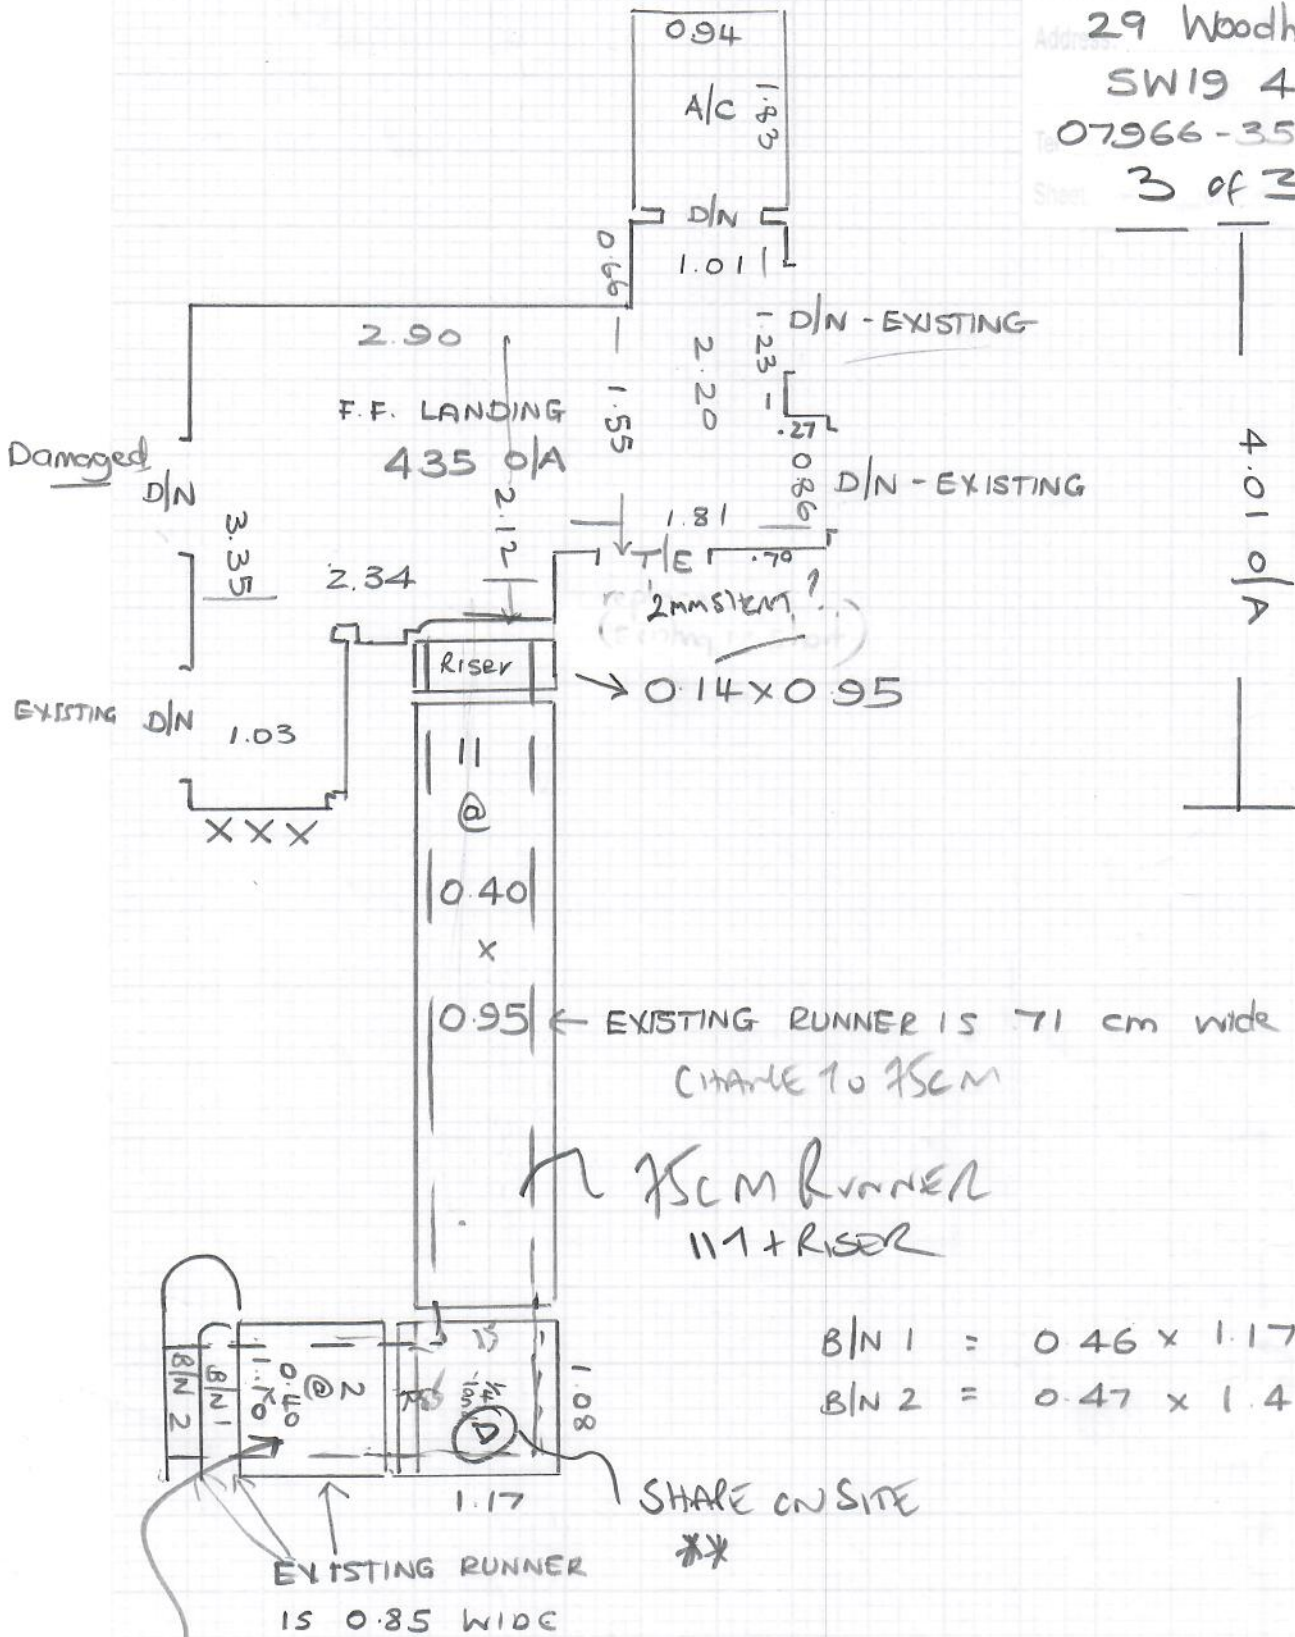 Address:
29 Woodh
SW19 4
Tel
07966-35
Sheet
3 of 3
0.94
A/C
1.83
D/N
0.66
1.01
D/N - EXISTING
1.23
2.20
2.90
1.55
F.F. LANDING
435 O/A
.27
0.86
D/N - EXISTING
4.01 O/A
Damaged
D/N
3.35
2.34
2.12
1.81
T/E
.70
2mm
Riser
0.14 x 0.95
EXISTING D/N
1.03
XXX
11
@
0.40
x
0.95
← EXISTING RUNNER IS 71 cm wide
CHANGE TO 75CM
75CM RUNNER
11 + RISER
B/N 1 = 0.46 x 1.17
B/N 2 = 0.47 x 1.4
B/N 2
B/N 1
2
@
0.40
D
1.08
1.17
SHAPE ON SITE
**
EXISTING RUNNER
IS 0.85 WIDE